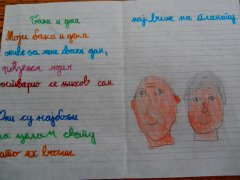 Бака и дека
Моји бака и дека
живе за мене сваки дан,
рођењем мојим
остварио се њихов сан
Они су најбољи
на целом свету
зато их волим
највише на планету